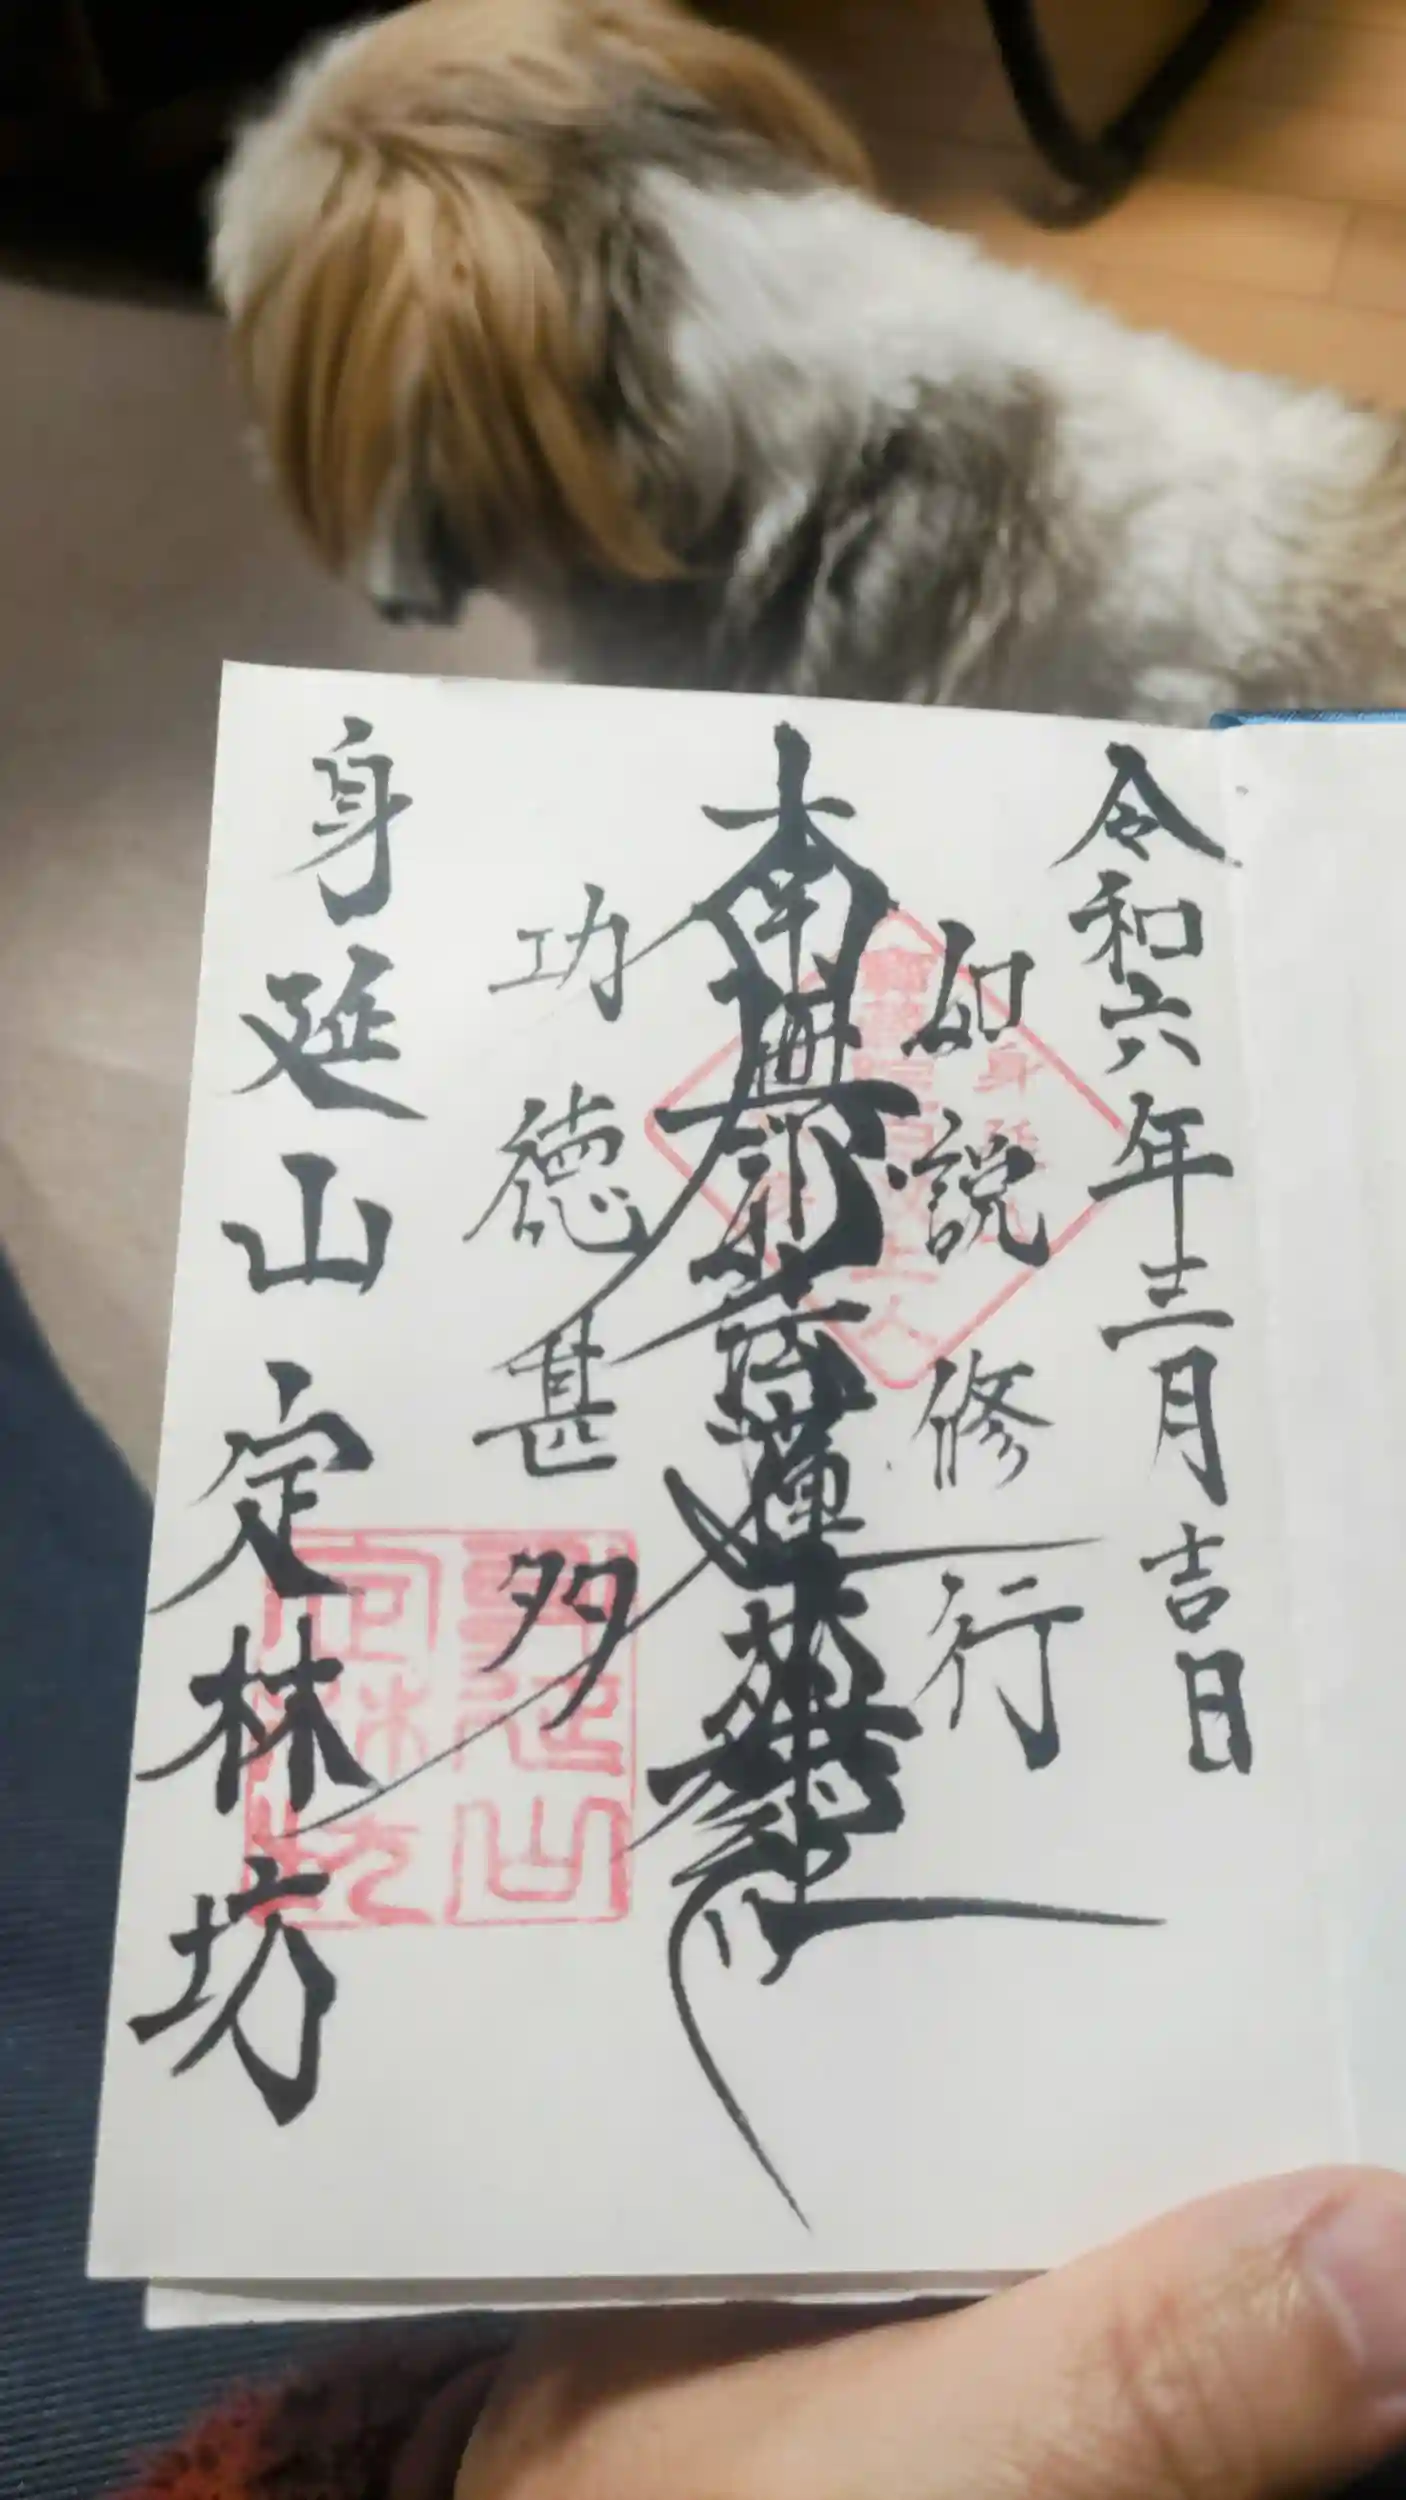 令和六年十二月吉日
如説修行
南無妙法蓮華経
功徳甚多
身延山定林坊
身延山
定林坊